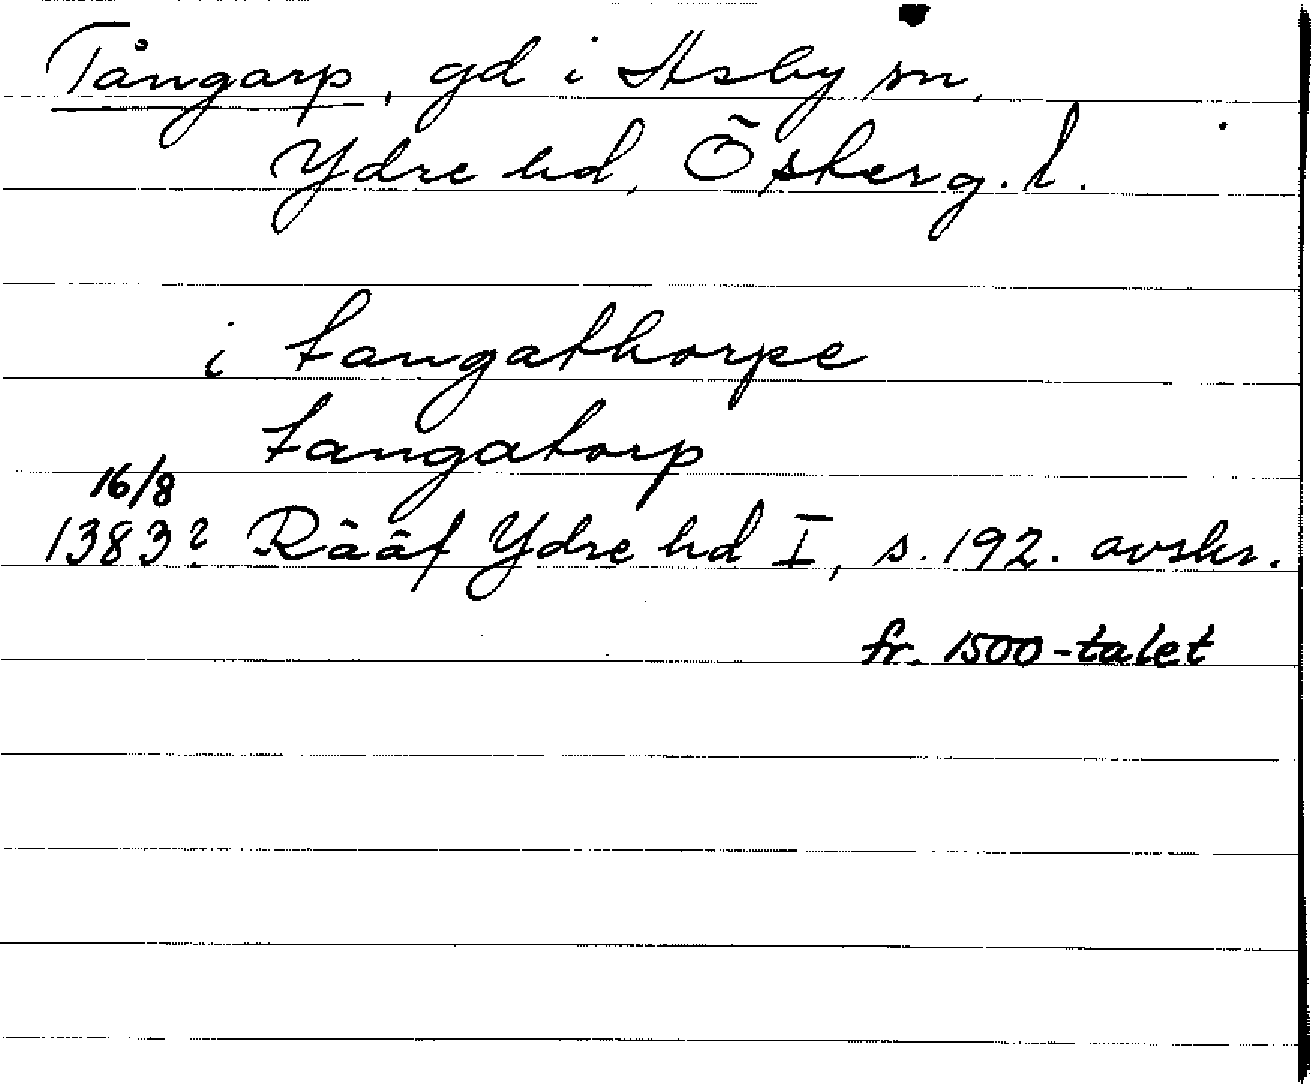 Tångarp, gd i Asby sn,
Ydre hd, Österg. l.
i tangathorpe
tangatorp
16/8
1383? Rääf Ydre hd I, s. 192. avskr.
fr. 1500-talet